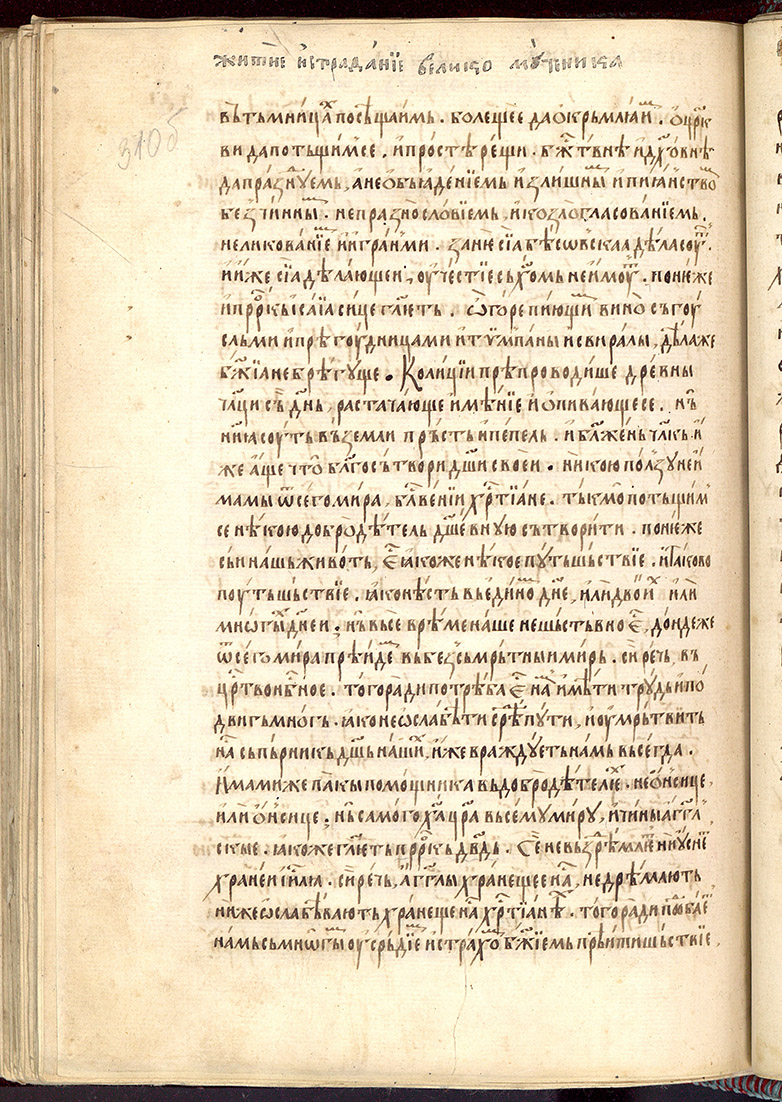 житїе и страданїе велико мꙋченика
310б
вътъмницахъ посѣщаимь. болещее да окрьмлꙗаи. ѡцрⷦ҇ъ
ви да потьщимсе. и простѣ рещи. бжⷭ҇твнѣ и дх҃овнѣ
да празнꙋемь, а не обꙗденїемь излишны и пиꙗнство
безчинны. не празнословїемь, и козлогласованїемь.
не ликованїе и играньми. зане сїа бѣсѡвска дѣла соуⷮ.
и иже сїа дѣлающеи, оучестїе съ хм҃ь не имоуⷮ. понеже
и прⷪ҇ркь исаїа сице гл҃еть. ѡ горе пиющи вино съ гоу
сльми и прѣгоудницами и тѵмпаны и свиралы, дѣла же
бж҃їа небрѣгꙋще. Колици прѣпроводише древны
чаци съ днь, растачающе имѣнїе и опивающесе. нн҃ꙗ
нꙗ соуть въ земли прьсть и пепель. и блаженъ чл҃къ и
же аще что благо сътвори дш҃и своеи. никою ползꙋ неи
мамы ѿ сего мира, блⷭ҇вени хрⷭ҇тїане. тькмо потьщим
се нѣкою добродѣтель дш҃евную сътворити. понеже
сьи нашь животь, еⷭ҇ ꙗкоже нѣкое пꙋтьшьствїе. и таково
поутьшьствїе. ꙗко нѣсть въ единѡ дн҃е, или двоиⷯ или
мнѡгыⷯ днеи; нь въсе врѣме наше нешьствїно еⷭ҇, дондеже
ѿ сего мира прѣиде въ безсьмрьтныи мирь. сирѣчь, въ
црⷭ҇тво нбⷭ҇ное. того ради потрѣба еⷭ҇ наⷨ имѣти трꙋды и по
двигь многь. ꙗко не ѡслабѣти срⷣѣ пꙋти, и оумрьтвить
на сьпѣрникь дш҃ь нашиⷯ, иже враждꙋеть намь вьсегда.
Имами же пакы помощника въ добродѣтелеⷯ. не ѡнсице
или ѡнсице; нь самого х҃а цр҃а вьсемꙋ мирꙋ, и чины агг҃л
скые. ꙗкоже гл҃еть прⷪ҇ркь дв҃дь. Се не въздрѣмлеⷮ ни ꙋснеⷮ
хранеи ї҃илꙗ. сирѣчь, агг҃лы хранещее наⷭ҇, не дрѣмлють
ниже ѡслабѣвають хранеще на хрⷭ҇тїанѣⷯ. того ради подобаеⷮ
намь сь мнѡгы оусрьдїе и страхѡ бж҃їемь прѣити шьствїе